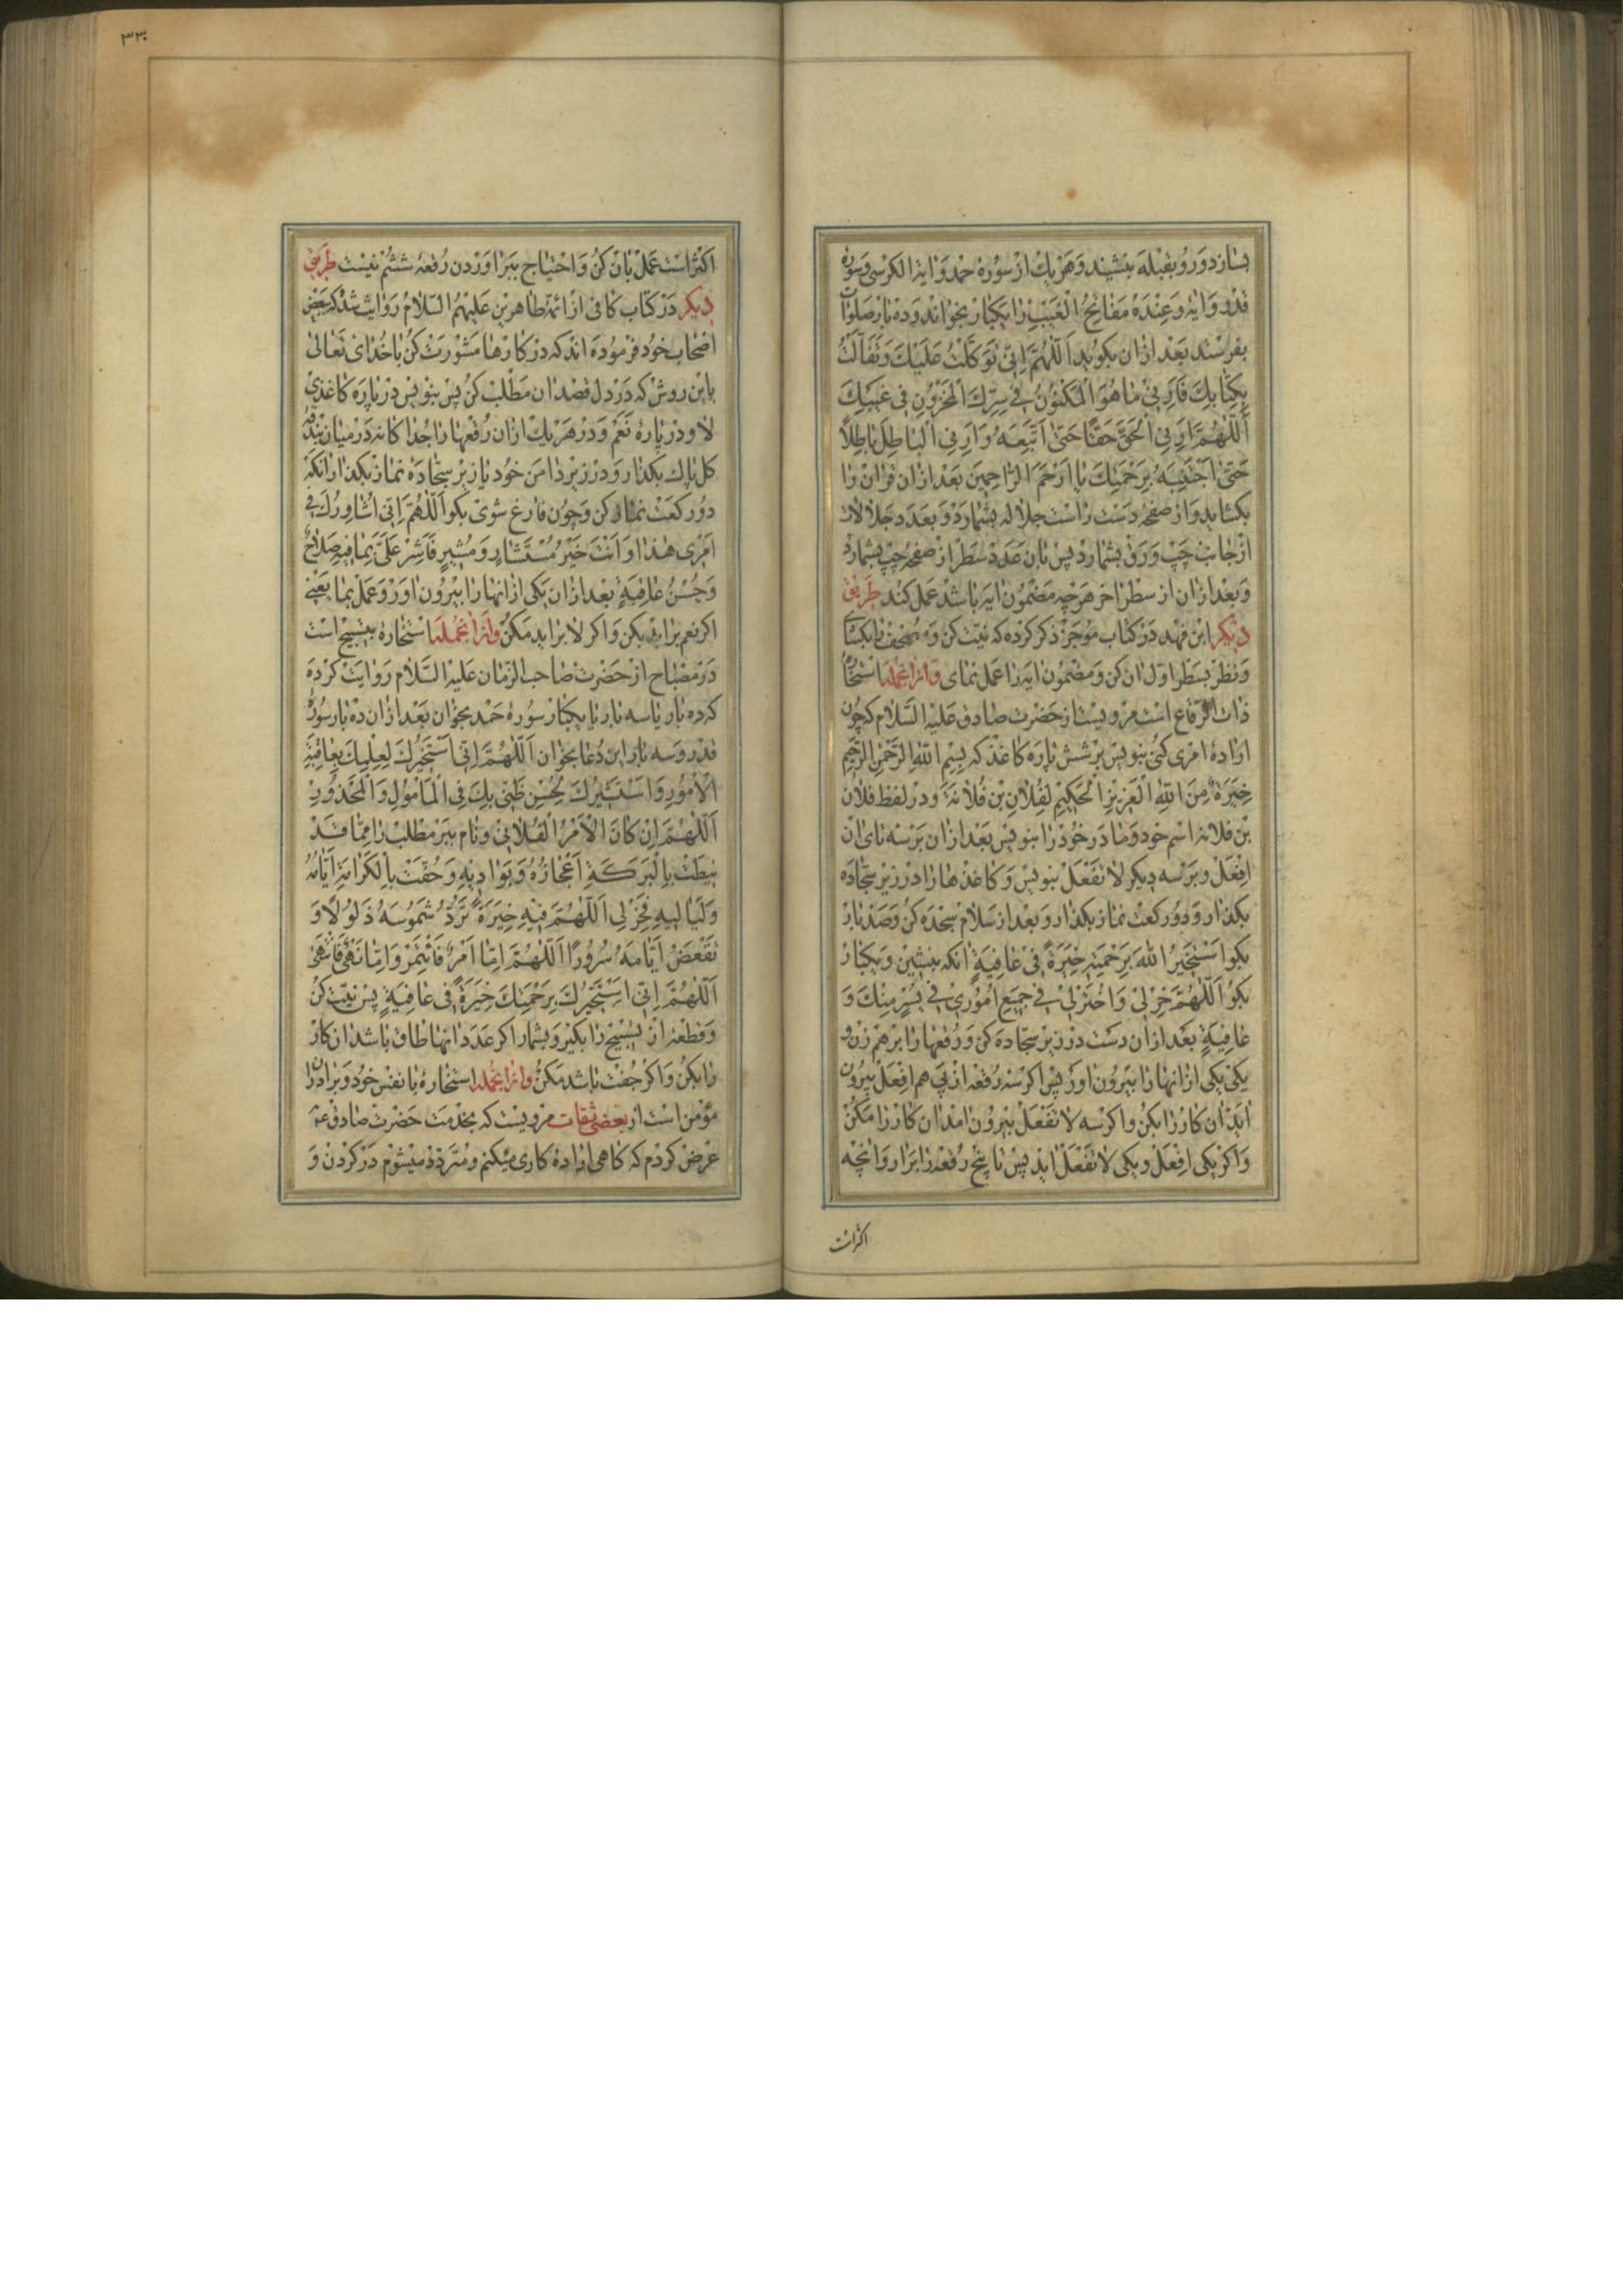 بسازد و رو بقبله بنشیند و هر یک از سورهٔ حمد و ایة الکرسی و سوره
قدر و ایه و عنده مفاتح الغیب را یکبار بخواند و ده بار صلوات
بفرستد بعد ازان بکوید اَللّٰهُمَّ اِنّی تَوَکَّلْتُ عَلَیْكَ وَ تَفَأَلْتُ
بِکِتابِكَ فَاَرِنی ما هُوَ الْمَکْنُونُ فی سِرِّكَ الْمَخْزُونِ فی غَیْبِكَ
اَللّٰهُمَّ اَرِنِی الْحَقَّ حَقًّا حَتّیٰ اَتَّبِعَهُ وَ اَرِنِی الْباطِلَ باطِلًا
حَتّیٰ اَجْتَنِبَهُ بِرَحْمَتِكَ یا اَرْحَمَ الرّاحِمینَ بعد ازان قران را
بکشاید و از صفحه دست راست جلاله بشمارد و بعدد جلالات
از جانب چپ ورق بشمارد پس بان عدد سطر از صفحه چپ بشمارد
و بعد ازان از سطر اخر هرچه مضمون ایه باشد عمل کند طریق
دیکر ابن فهد در کتاب موجز ذکر کرده که نیت کن و مصحف را بکشای
و نظر بسطر اول ان کن و مضمون ایه را عمل نمای و ازانجمله استخاره
ذات الرقاع است مرویست از حضرت صادق علیه السلام که چون
ارادهٔ امری کنی بنویس بر شش پاره کاغذ که بِسْمِ اللّٰهِ الرَّحْمٰنِ الرَّحیمِ
خِیَرَةٌ مِنَ اللّٰهِ الْعَزیزِ الْحَکیمِ لِفُلانِ بْنِ فُلانَة و در لفظ فلان
بن فلانه اسم خود و مادر خود را بنویس بعد ازان بر سه تای ان
اِفْعَلْ و بر سه دیکر لا تَفْعَلْ بنویس و کاغذها را در زیر سجاده
بکذار و دو رکعت نماز بکذار و بعد از سلام سجده کن و صد بار
بکو اَسْتَخیرُ اللّٰهَ بِرَحْمَتِهِ خِیَرَةً فی عافِیَةٍ انکه بنشین و یکبار
بکو اَللّٰهُمَّ خِرْ لی وَ اخْتَرْ لی فی جَمیعِ اُمُوری فی یُسْرٍ مِنْكَ وَ
عافِیَةٍ بعد ازان دست در زیر سجاده کن و رقعها را برهم زن و
یکی یکی از انها را بیرون اور پس اکر سه رقعه از پی هم افعل بیرون
اید ان کار را بکن و اکر سه لا تفعل بیرون امد ان کار را مکن
و اکر یکی افعل و یکی لا تفعل اید پس تا پنج رقعه را برار و انچه
اکثر است
۳۳۰
اکثر است عمل بان کن و احتیاج ببر اوردن رقعه ششم نیست طریق
دیکر در کتاب کافی از ائمه طاهرین علیهم السلام روایت شده که بعض
اصحاب خود فرموده اند که در کارها مشورت کن با خدای تعالی
باین روش که در دل قصد ان مطلب کن پس بنویس در پاره کاغذی
لا و در پارهٔ نَعَمْ و در هر یک ازان رقعها را جداکانه در میان بندقه
کل پاک بکذار و در زیر دامن خود یا زیر سجاده نماز بکذار انکه
دو رکعت نماز کن و چون فارغ شوی بکو اَللّٰهُمَّ اِنّی اُشاوِرُكَ فی
اَمْری هٰذا وَ اَنْتَ خَیْرُ مُسْتَشارٍ وَ مُشیرٍ فَاَشِرْ عَلَیَّ بِما فیهِ صَلاحٌ
وَ حُسْنُ عافِیَةٍ بعد ازان یکی از انها را بیرون اور و عمل نما یعنی
اکر نعم براید بکن و اکر لا براید مکن و ازانجمله استخارهٔ بتسبیح است
در مصباح از حضرت صاحب الزمان علیه السلام روایت کرده
که ده بار یا سه بار یا یکبار سورهٔ حمد بخوان بعد ازان ده بار سورهٔ
قدر و سه بار این دعا بخوان اَللّٰهُمَّ اِنّی اَسْتَخیرُكَ لِعِلْمِكَ بِعاقِبَةِ
الْاُمُورِ وَ اَسْتَشیرُكَ لِحُسْنِ ظَنّی بِكَ فِی الْمَأْمُولِ وَ الْمَحْذُورِ
اَللّٰهُمَّ اِنْ کانَ الْاَمْرُ الْفُلانِیُّ و نام ببر مطلب را مِمّا قَدْ
نیطَتْ بِالْبَرَکَةِ اَعْجازُهُ وَ بَوادیهِ وَ حُفَّتْ بِالْکَرامَةِ اَیّامُهُ
وَ لَیالیهِ فَخِرْ لی اَللّٰهُمَّ فیهِ خِیَرَةً تَرُدُّ شُمُوسَهُ ذَلُولًا وَ
تَقْعَضُ اَیّامَهُ سُرُورًا اَللّٰهُمَّ اِمّا اَمْرٌ فَأْتَمِرُ وَ اِمّا نَهْیٌ فَانْتَهی
اَللّٰهُمَّ اِنّی اَسْتَخیرُكَ بِرَحْمَتِكَ خِیَرَةً فی عافِیَةٍ پس نیت کن
و قطعه از تسبیح را بکیر و بشمار اکر عدد انها طاق باشد ان کار
را بکن و اکر جفت باشد مکن و ازانجمله استخارهٔ با نفس خود و برادران
مؤمن است از بعضی ثقات مرویست که بخدمت حضرت صادق ع
عرض کردم که کاهی ارادهٔ کاری میکنم و متردد میشوم در کردن و